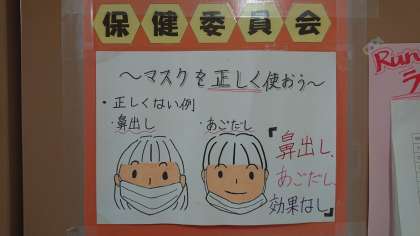 保健委員会
〜マスクを正しく使おう〜
・正しくない例
・鼻出し
・あごだし
「鼻出し、
あごだし、
効果なし」
Run
ラ